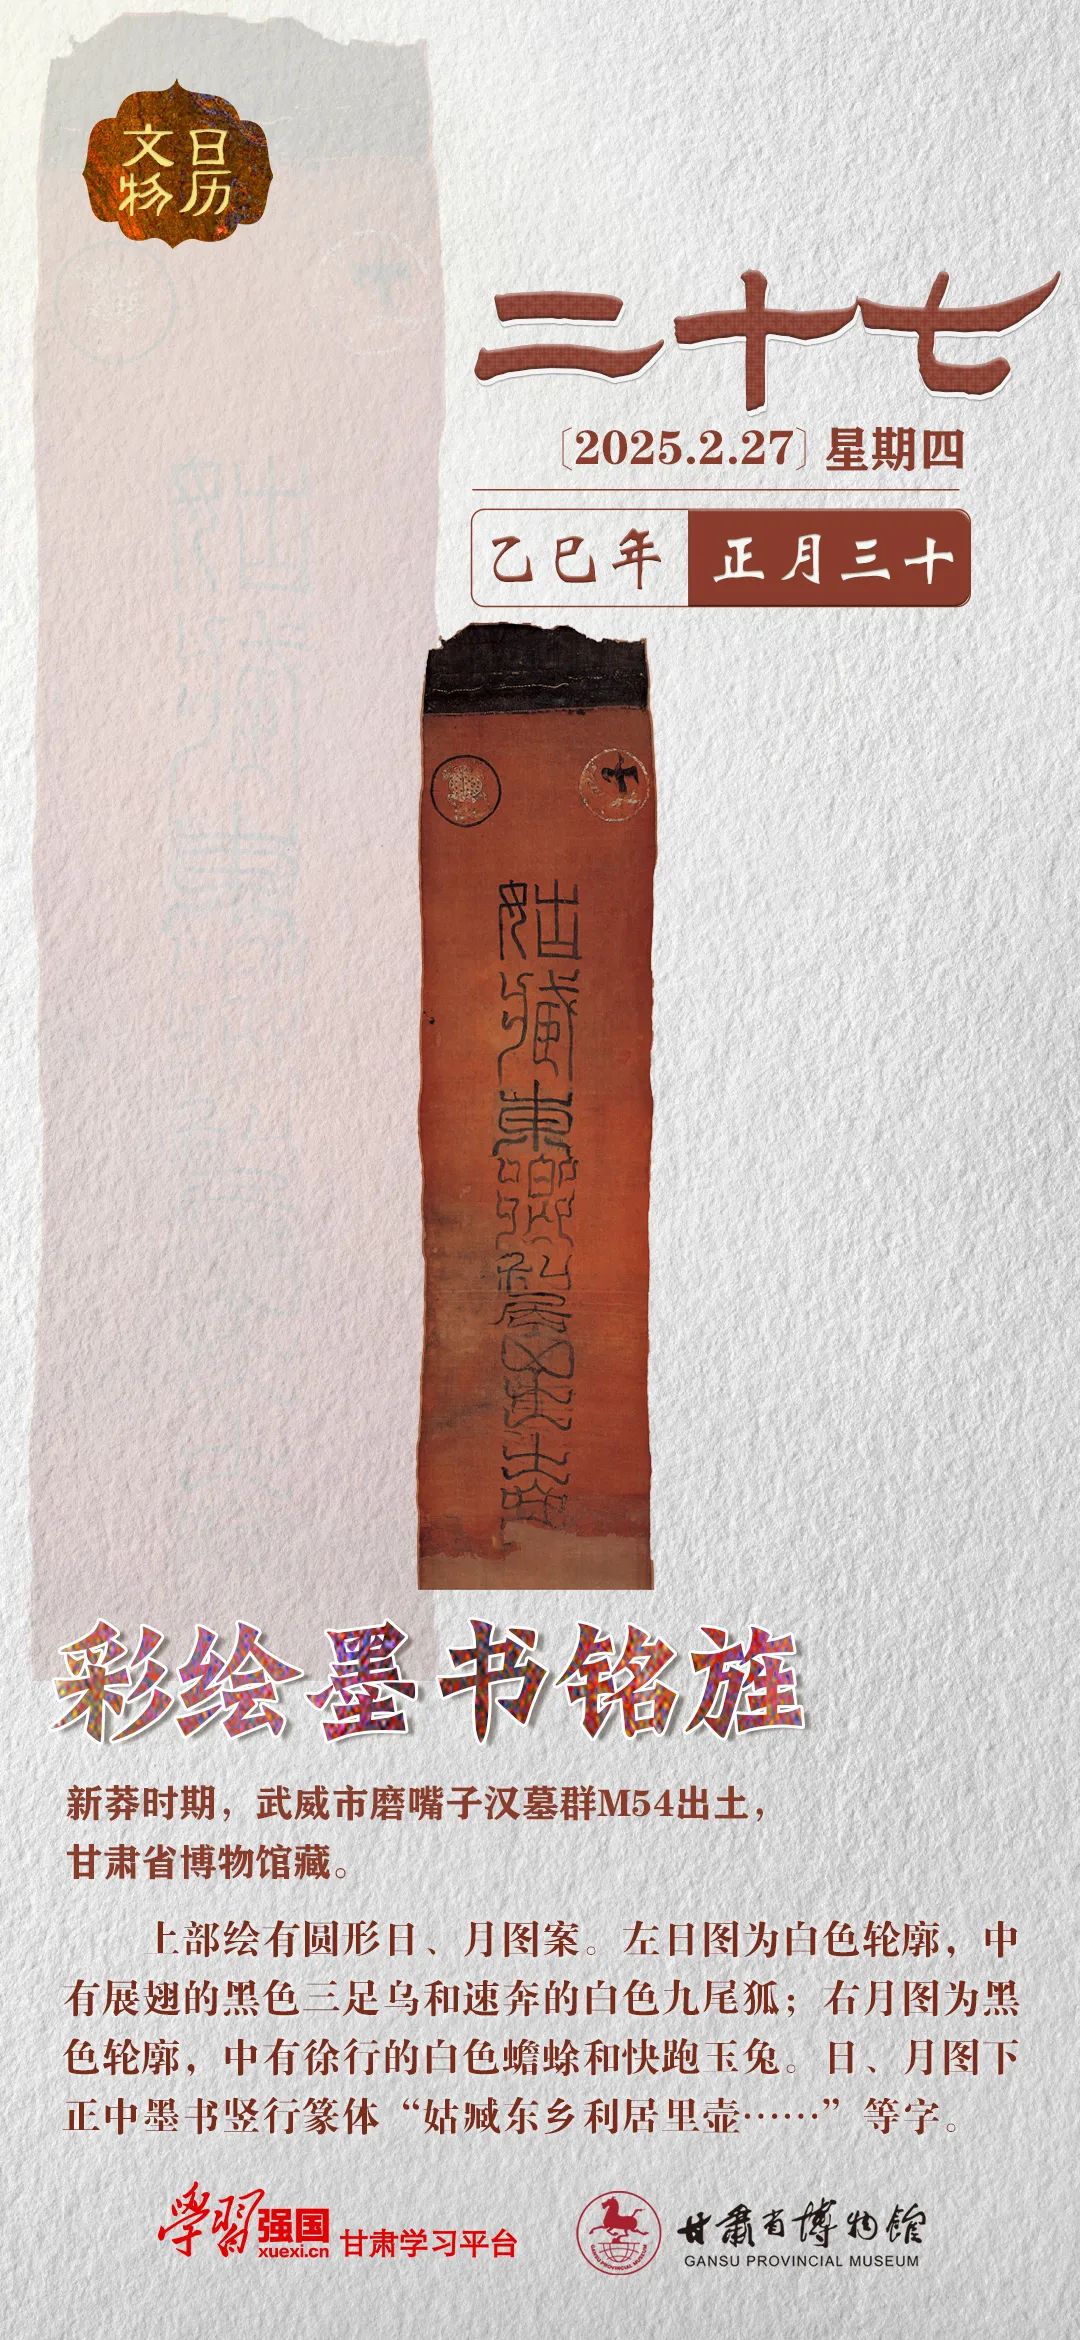 文物
日历
二十七
〔2025.2.27〕星期四
乙巳年 正月三十
彩绘墨书铭旌
新莽时期，武威市磨嘴子汉墓群M54出土，
甘肃省博物馆藏。
上部绘有圆形日、月图案。左日图为白色轮廓，中
有展翅的黑色三足乌和速奔的白色九尾狐；右月图为黑
色轮廓，中有徐行的白色蟾蜍和快跑玉兔。日、月图下
正中墨书竖行篆体“姑臧东乡利居里壶……”等字。
學習强国
xuexi.cn
甘肃学习平台
甘肅省博物館
GANSU PROVINCIAL MUSEUM